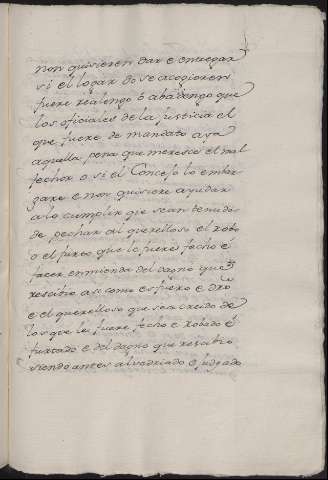 non quisieren dar e entregar
si el logar do se acogieren
fuere realengo o abadengo que
los oficiales de la justicia el
que fuere de mandato aya
aquella pena que meresce el mal
fechor o si el Concejo lo embar
gare e non quisiere ayudar
a lo cumplir que sean tenudos
de pechar al querelloso el robo
o el furto que le fuere fecho e
facer enmienda del dagno que
rescibio asi como es fuero e dro
e el querelloso que sea creido de
los que le fuere fecho e robado e
furtado e del dagno que rescibio
siendo antes alvedriado e judgado